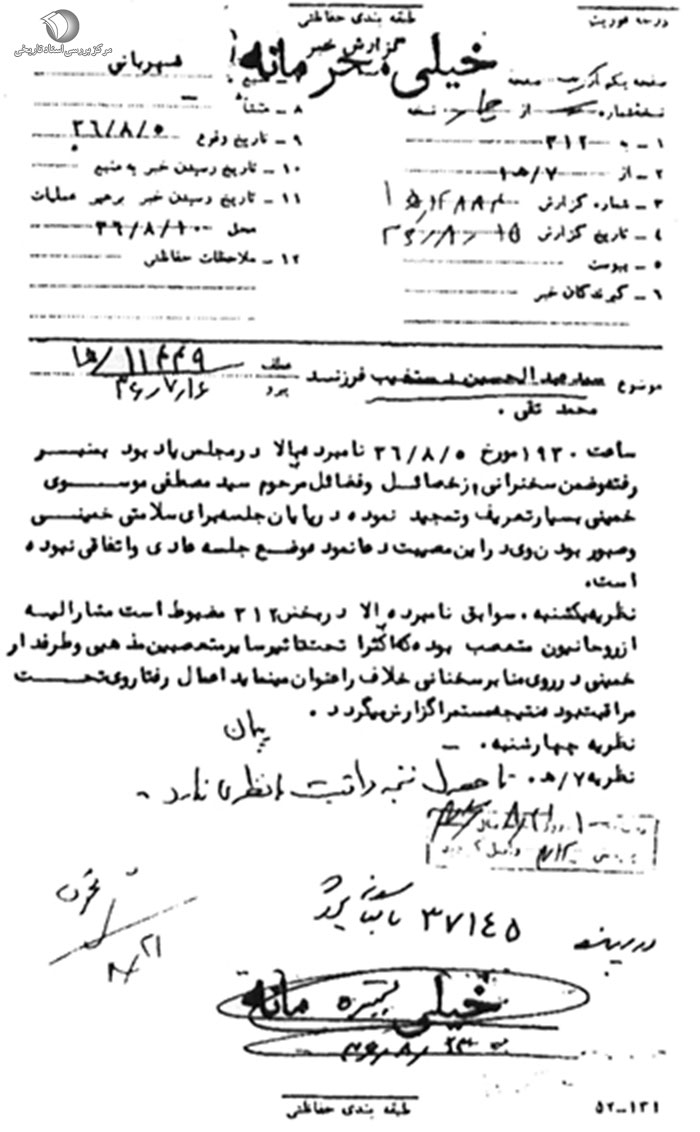 مرکز بررسی اسناد تاریخی
طبقه بندی حفاظتی
درجه فوریت
گزارش خبر
خیلی محرمانه
صفحه یکم از صفحه
نسخه شماره از چهار نسخه
۱ ـ به ۳۱۲
۲ ـ از ۷/ه
۳ ـ شماره گزارش
۴ ـ تاریخ گزارش
۵ ـ پیوست
۶ ـ گیرندگان خبر
۷ ـ منبع شهربانی
۸ ـ منشأ
۹ ـ تاریخ وقوع ۳۶/۸/۵
۱۰ ـ تاریخ رسیدن خبر به منبع
۱۱ ـ تاریخ رسیدن خبر برهبر عملیات
محل ۳۶/۸/۱۰
۱۲ ـ ملاحظات حفاظتی
موضوع سید عبدالحسین دستغیب فرزند
محمد تقی .
۱۱۴۴۹/ه
۳۶/۷/۱۶
ساعت ۱۹۳۰ مورخ ۳۶/۸/۵ نامبرده بالا در مجلس یاد بود بمنبر
رفته وضمن سخنرانی از خصائل وفضائل مرحوم سید مصطفی موسوی
خمینی بسیار تعریف وتمجید نموده در پایان جلسه برای سلامتی خمینی
وصبور بودن وی در این مصیبت دعا نمود موضع جلسه عادی واتفاقی نبوده
است .
نظریه یکشنبه . سوابق نامبرده بالا در بخش ۳۱۲ مضبوط است مشارالیه
از روحانیون متعصب بوده که اکثرا تحت تاثیر سایر متعصبین مذهبی وطرفدار
خمینی در روی منابر سخنانی خلاف را عنوان مینماید اعمال ورفتار وی تحت
مراقبت بود نتیجه مستمرا گزارش میگردد .
نظریه چهارشنبه . ـ پیمان
نظریه ۷/ه . تا حصول نتیجه مراقبت نظری ندارد .
۳۷۱۴۵
خیلی محرمانه
طبقه بندی حفاظتی
۵۲ـ۱۳۱